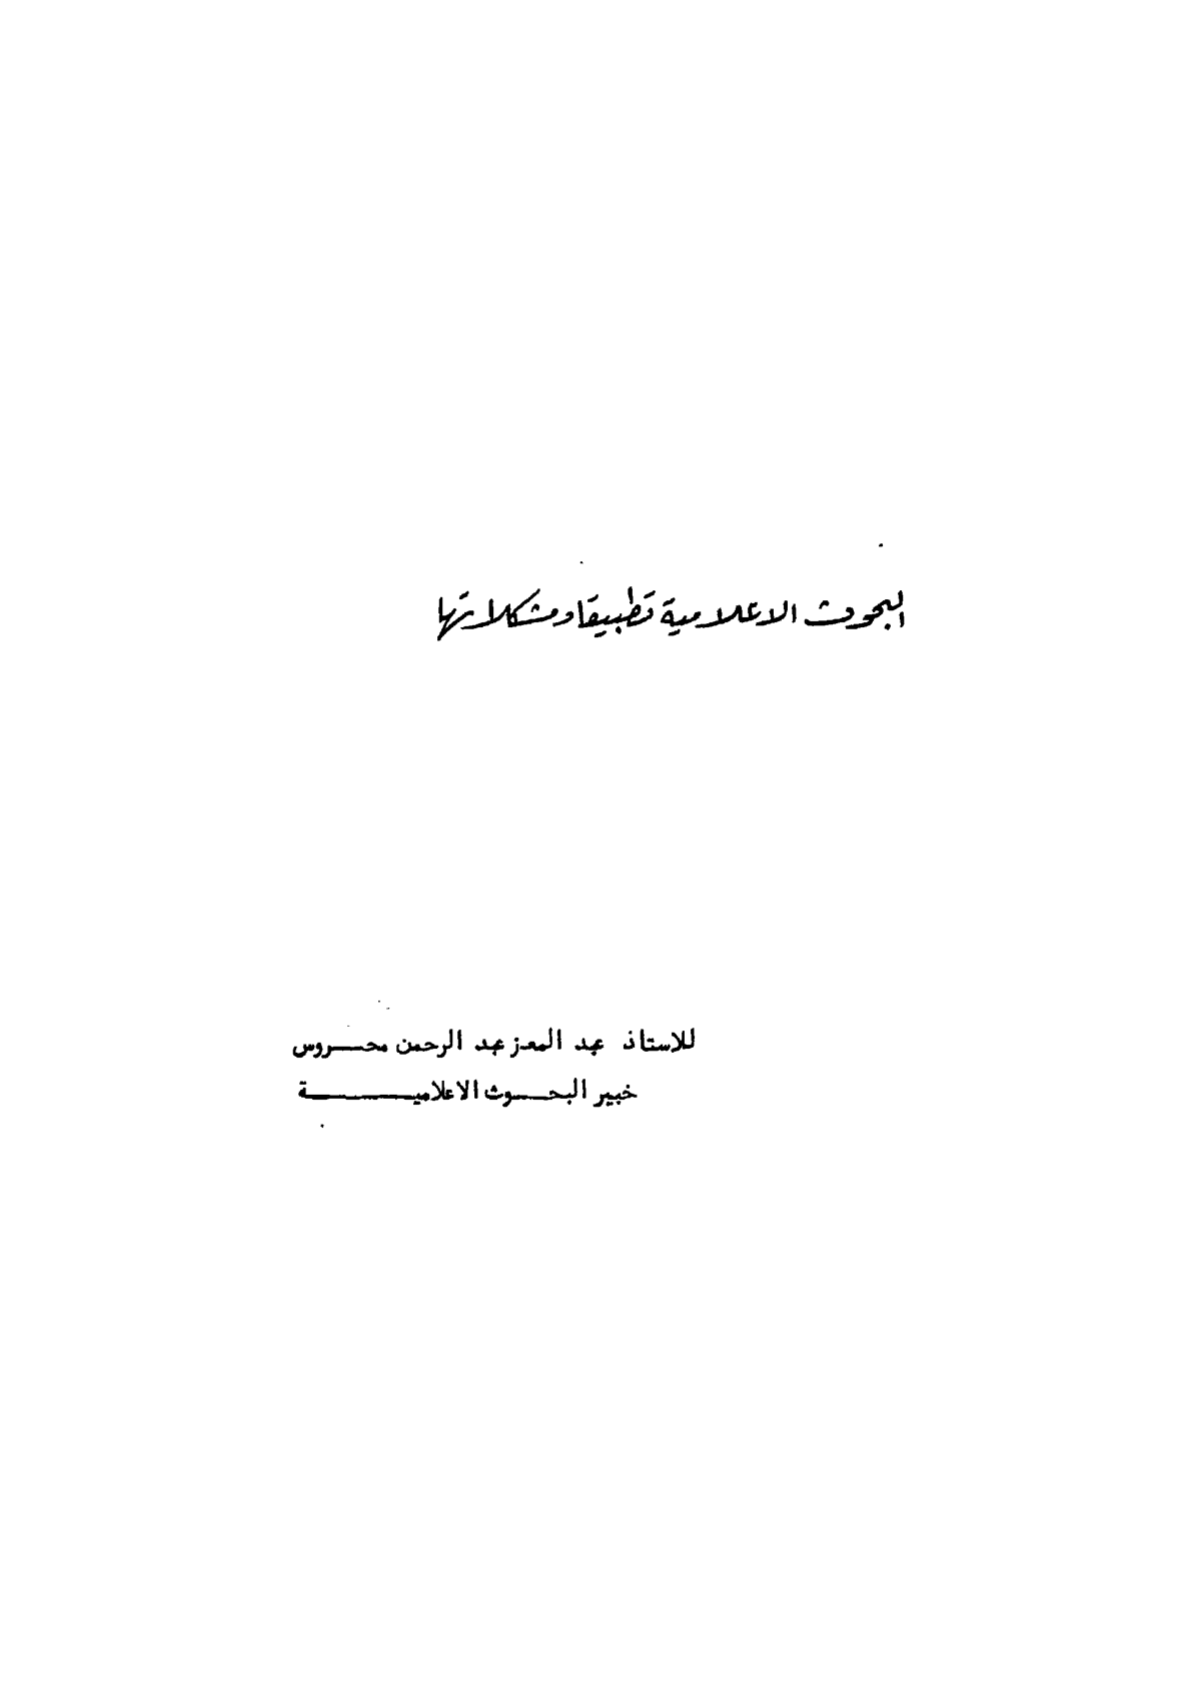 البحوث الاعلامية تطبيقا ومشكلاتها
للاستاذ عبد المعز عبد الرحمن محروس
خبير البحوث الاعلامية